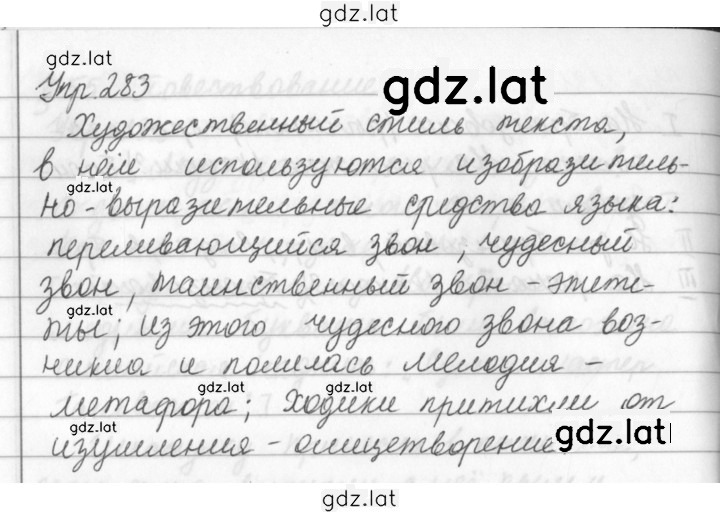 gdz.lat
gdz.lat
Упр. 283
gdz.lat
Художественный стиль текста,
в нём используются изобразитель-
gdz.lat
но-выразительные средства языка:
переливающийся звон, чудесный
звон, таинственный звон - эпите-
gdz.lat
ты; из этого чудесного звона воз-
никла и полилась мелодия -
gdz.lat gdz.lat
метафора; Ходики притихли от
изумления - олицетворение.
gdz.lat
gdz.lat